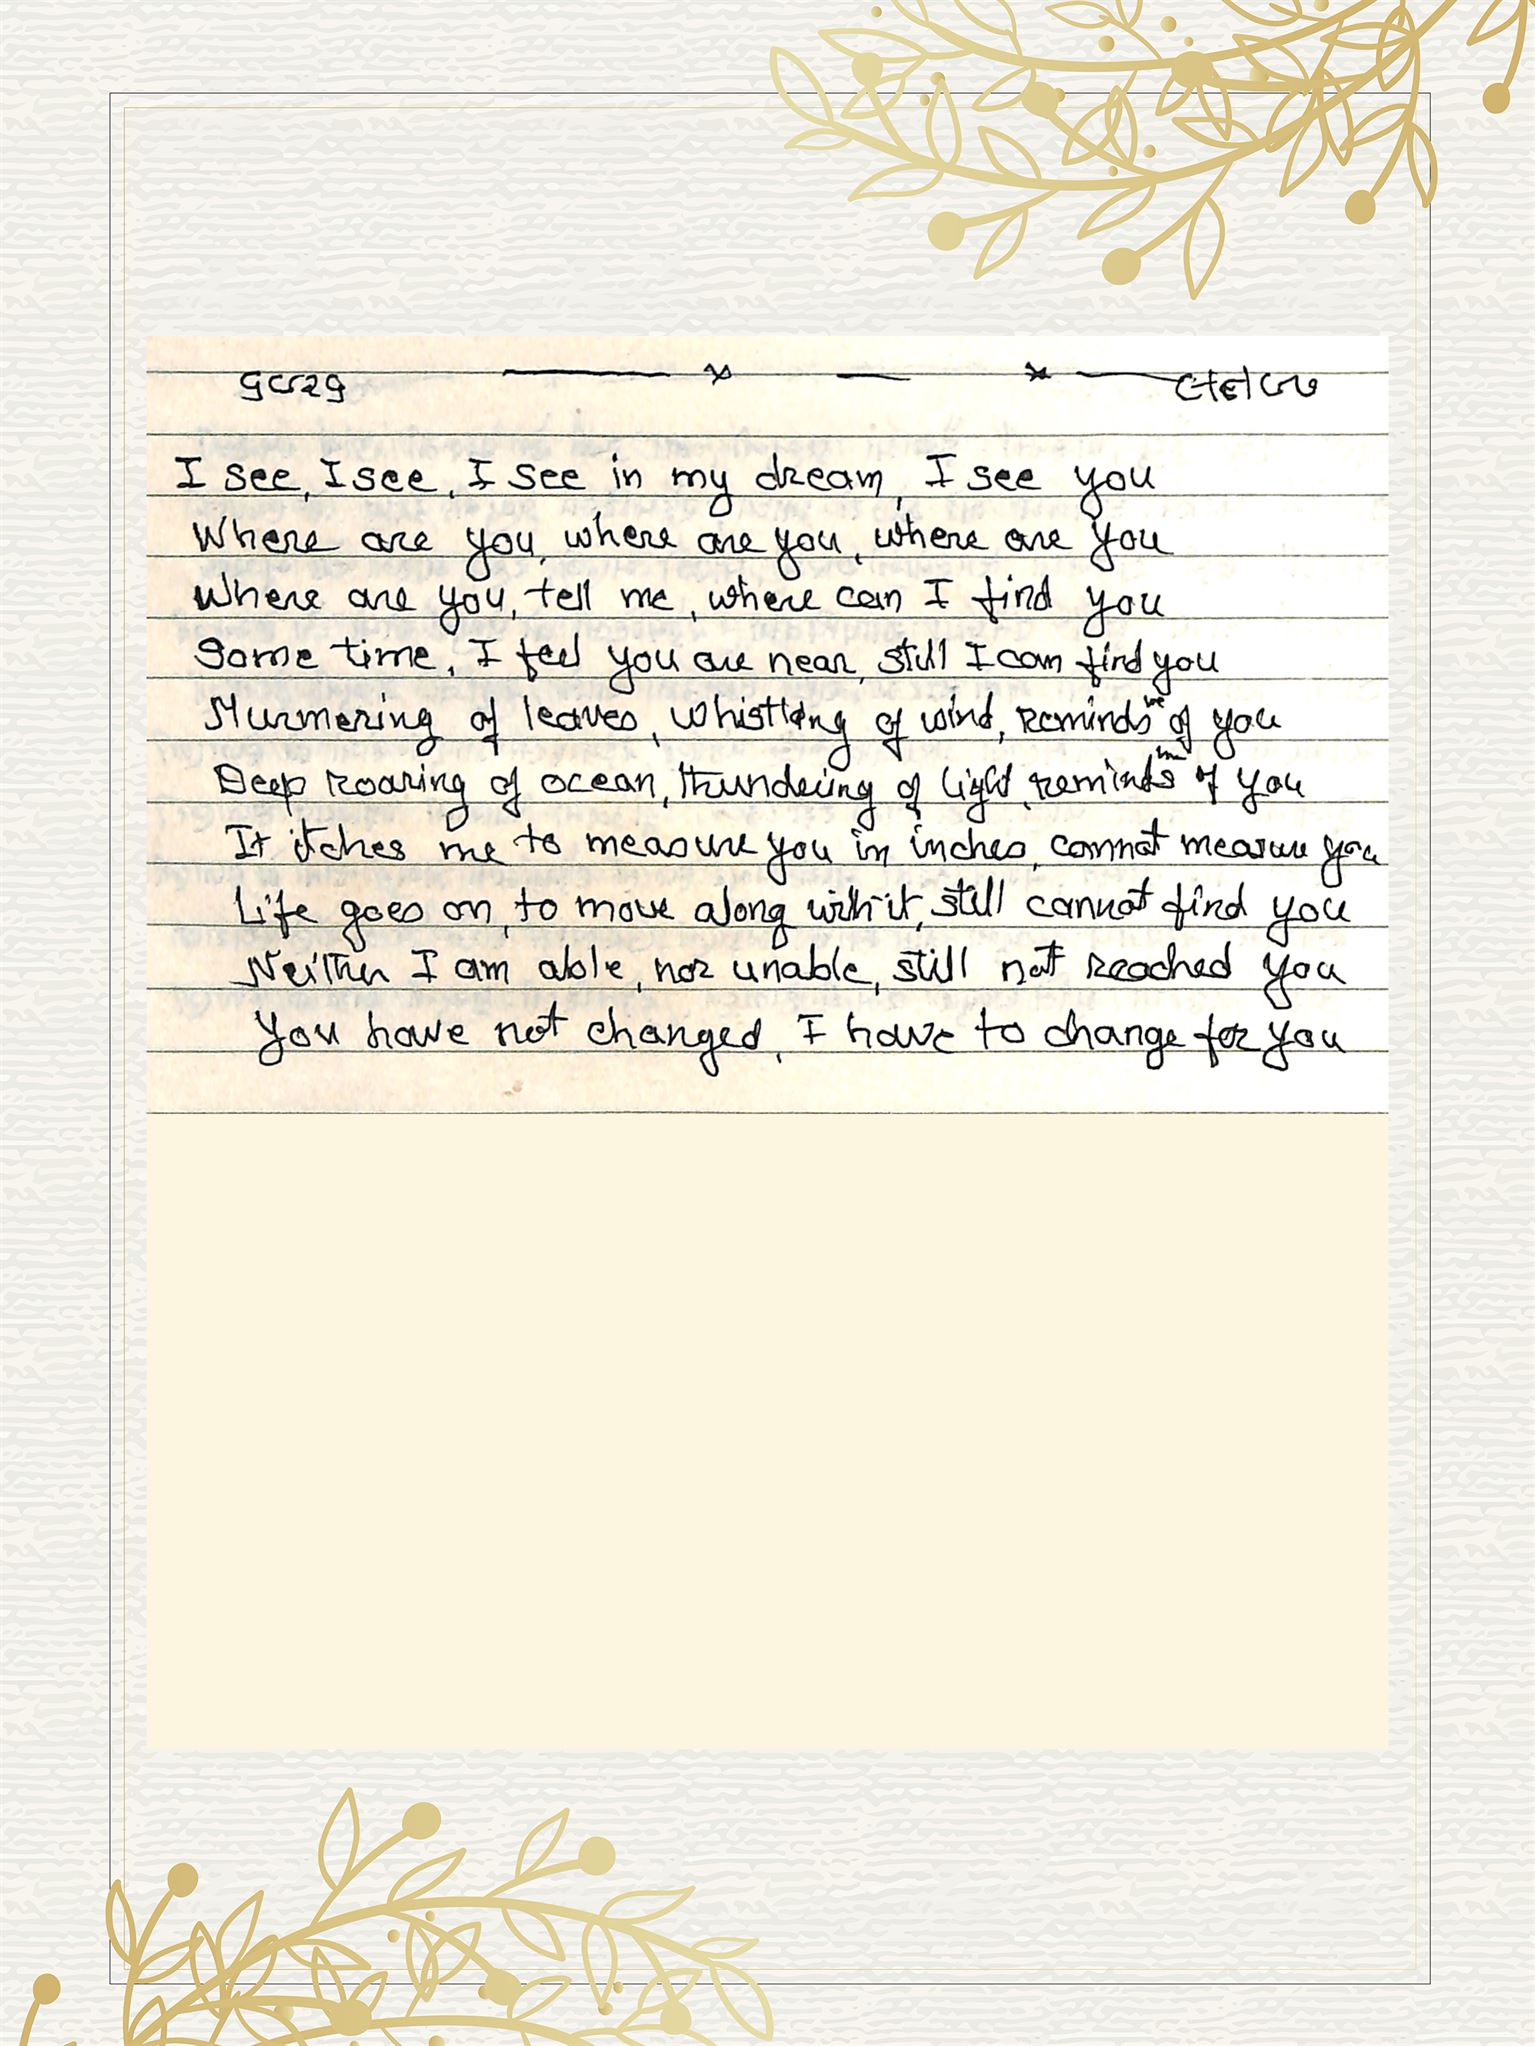 I see, I see, I see in my dream, I see you
Where are you, where are you, where are you
Where are you, tell me, where can I find you
Some time, I feel you are near, still I can find you
Murmering of leaves, whistling of wind, reminds me of you
Deep roaring of ocean, thundering of light, reminds me of you
It itches me to measure you in inches, cannot measure you
Life goes on, to move along with it, still cannot find you
Neither I am able, nor unable, still not reached you
You have not changed, I have to change for you